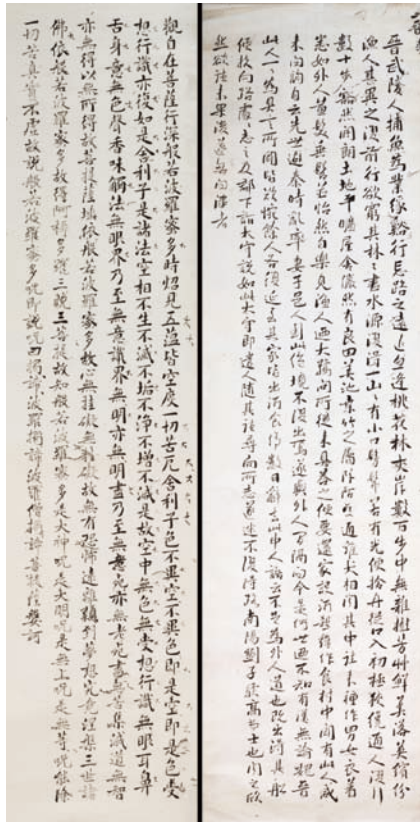 晉武陵人捕魚為業緣谿行忘路之遠近逢桃花林夾岸數百步中無雜樹芳艸鮮美落英繽紛
漁人異之復前行欲窮其林林盡水源便得一山山有小口髣髴若有光便捨舟從口入初極狹纔通人復行
數十步豁然開朗土地平曠屋舍儼然有良田美池桑竹之屬阡陌交通雞犬相聞其中往來種作男女衣著
悉如外人黃髮垂髫並怡然自樂見漁人迺大驚問所從來具答之便要還家設酒殺雞作食村中聞有此人咸
來問訊自云先世避秦時亂率妻子邑人到此絕境不復出焉遂與外人間隔問今是何世迺不知有漢無論魏晉
此人一一為具言所聞皆歎惋餘人各復延至其家皆出酒食停數日辭去此中人語云不足為外人道也既出得其船
便扶向路處處志之及郡下詣太守說如此太守即遣人隨其往尋向所志遂迷不復得路南陽劉子驥高尚士也聞之欣
然欲往未果後遂無問津者
觀自在菩薩行深般若波羅蜜多時照見五蘊皆空度一切苦厄舍利子色不異空空不異色色即是空空即是色受
想行識亦復如是舍利子是諸法空相不生不滅不垢不淨不增不減是故空中無色無受想行識無眼耳鼻
舌身意無色聲香味觸法無眼界乃至無意識界無無明亦無無明盡乃至無老死亦無老死盡無苦集滅道無智
亦無得以無所得故菩提薩埵依般若波羅蜜多故心無罣礙無罣礙故無有恐怖遠離顛倒夢想究竟涅槃三世諸
佛依般若波羅蜜多故得阿耨多羅三藐三菩提故知般若波羅蜜多是大神咒是大明咒是無上咒是無等等咒能除
一切苦真實不虛故說般若波羅蜜多咒即說咒曰揭諦揭諦波羅揭諦波羅僧揭諦菩提薩婆訶